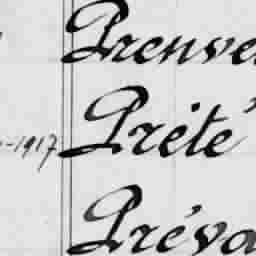 Prenve
-1917 Prété
Préva